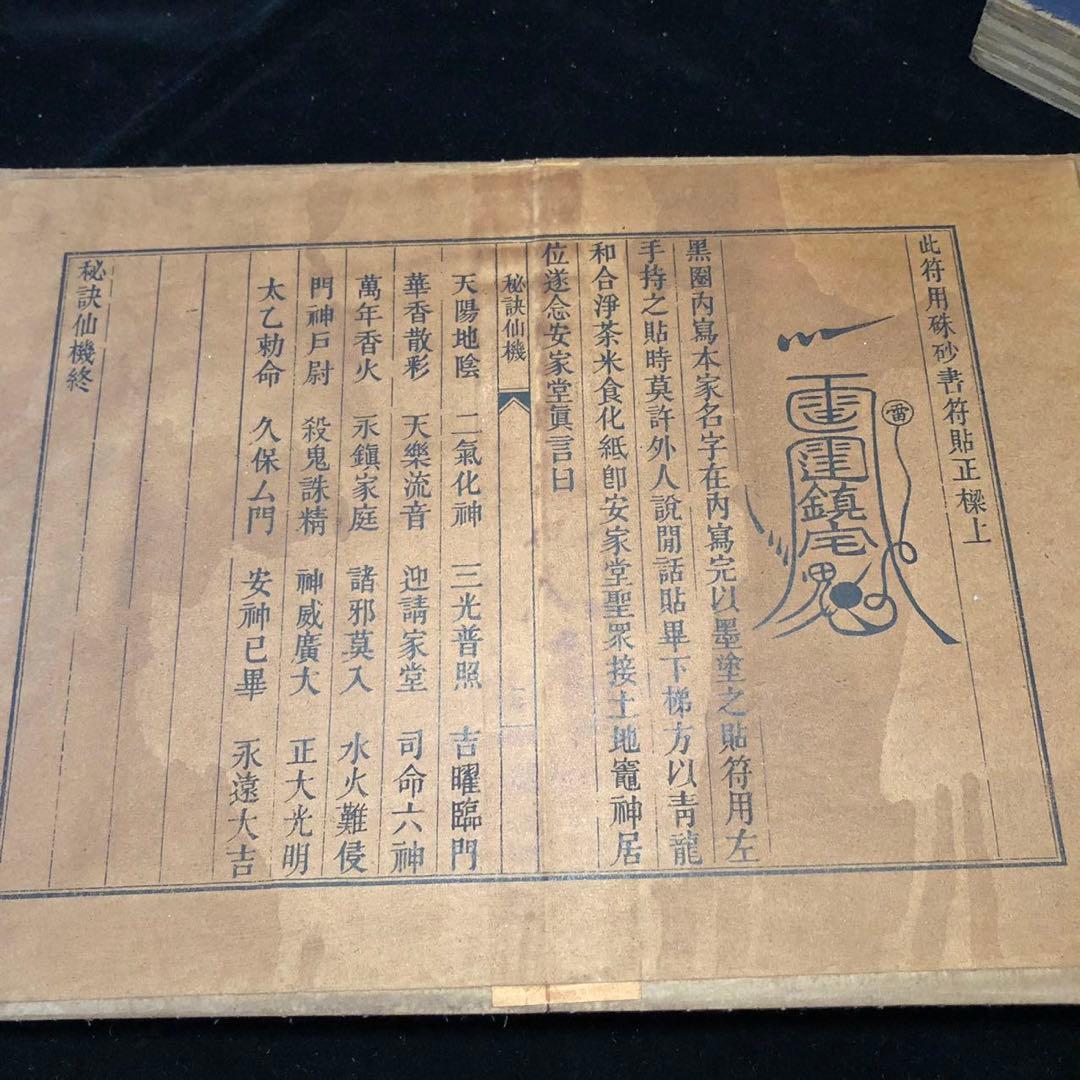 此符用硃砂書符貼正樑上
雷
鎮宅
黑圈內寫本家名字在內寫完以墨塗之貼符用左
手持之貼時莫許外人說閒話貼畢下梯方以青龍
和合淨茶米食化紙卽安家堂聖眾接土地竈神居
位遂念安家堂眞言曰
秘訣仙機
天陽地陰 二氣化神 三光普照 吉曜臨門
華香散彩 天樂流音 迎請家堂 司命六神
萬年香火 永鎮家庭 諸邪莫入 水火難侵
門神戶尉 殺鬼誅精 神威廣大 正大光明
太乙勅命 久保厶門 安神已畢 永遠大吉
秘訣仙機終